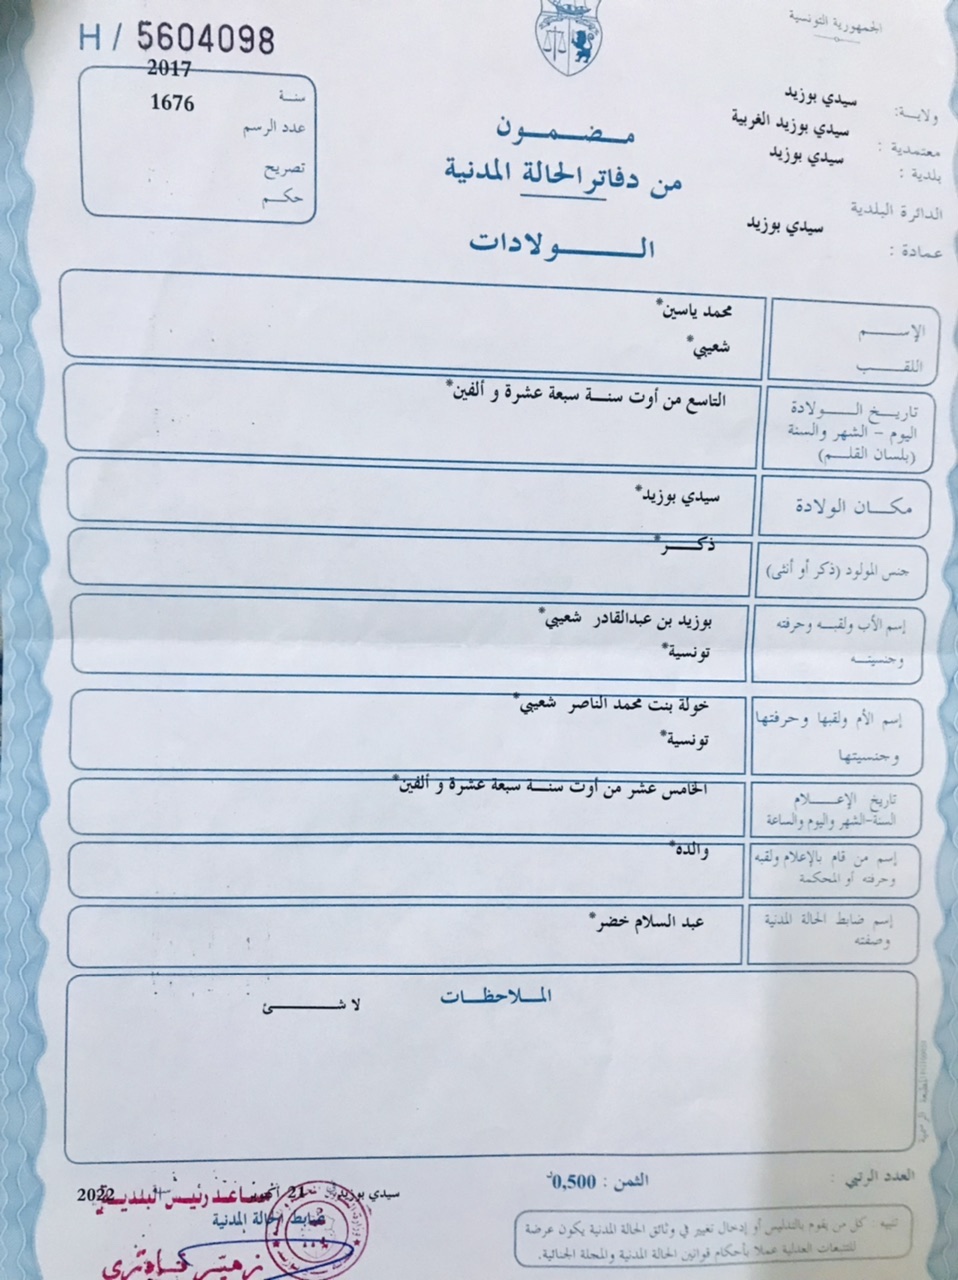 الجمهورية التونسية
H / 5604098
سنة 2017
عدد الرسم 1676
تصريح
حكم
ولاية: سيدي بوزيد
معتمدية : سيدي بوزيد الغربية
بلدية : سيدي بوزيد
الدائرة البلدية
عمادة : سيدي بوزيد
مضمون
من دفاتر الحالة المدنية
الولادات
الإسم محمد ياسين*
اللقب شعيبي*
تاريخ الولادة
اليوم – الشهر والسنة
(بلسان القلم)
التاسع من أوت سنة سبعة عشرة و ألفين*
مكان الولادة سيدي بوزيد*
جنس المولود (ذكر أو أنثى) ذكر*
إسم الأب ولقبه وحرفته بوزيد بن عبدالقادر شعيبي*
وجنسيته تونسية*
إسم الأم ولقبها وحرفتها خولة بنت محمد الناصر شعيبي*
وجنسيتها تونسية*
تاريخ الإعلام
السنة-الشهر واليوم والساعة
الخامس عشر من أوت سنة سبعة عشرة و ألفين*
إسم من قام بالإعلام ولقبه
وحرفته أو المحكمة
والده*
إسم ضابط الحالة المدنية
وصفته
عبد السلام خضر*
الملاحظات
لا شئ
العدد الرتبي :
الثمن : 0,500د
سيدي بوزيد في 21 2022
مساعد رئيس البلدية
ضابط الحالة المدنية
تنبيه : كل من يقوم بالتدليس أو إدخال تغيير في وثائق الحالة المدنية يكون عرضة
للتتبعات العدلية عملا بأحكام قوانين الحالة المدنية والمجلة الجنائية.